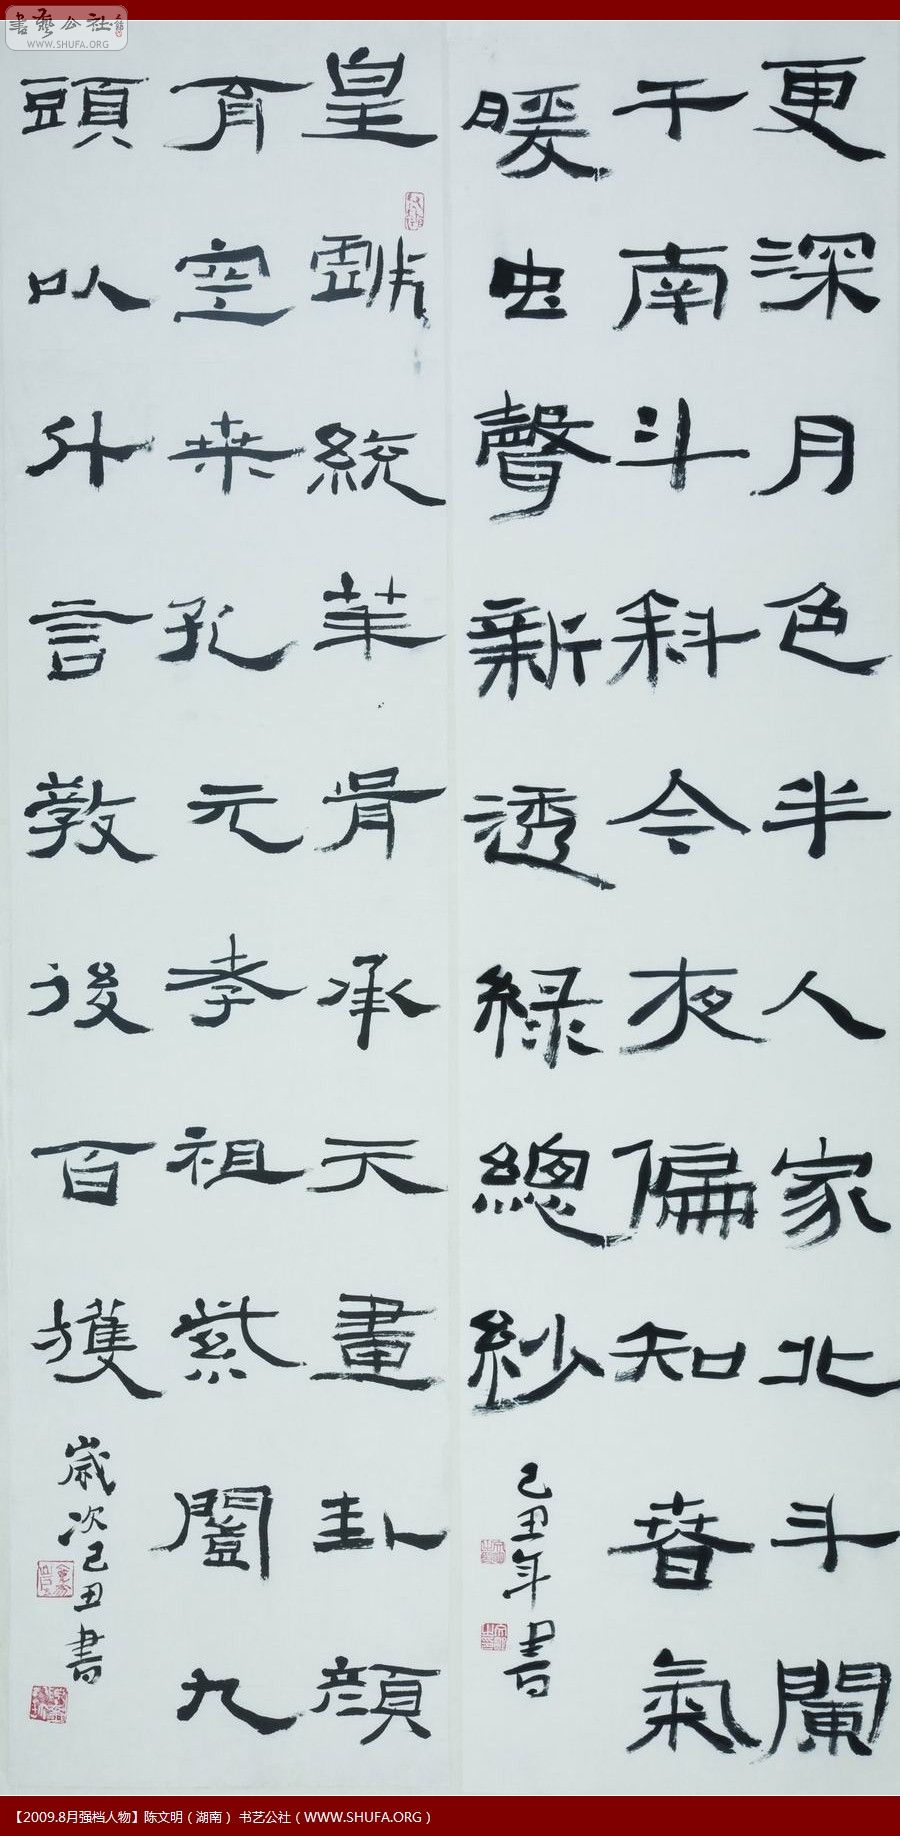 書藝公社
WWW.SHUFA.ORG
更深月色半人家北斗闌
干南斗斜今夜偏知春氣
暖虫聲新透綠總紗
己丑年書
皇戲統華胥承天畫卦顏
育空桑孔元孝祖紫闓九
頭以什言教後百獲
歲次己丑書
【2009.8月强档人物】陈文明（湖南） 书艺公社（WWW.SHUFA.ORG）